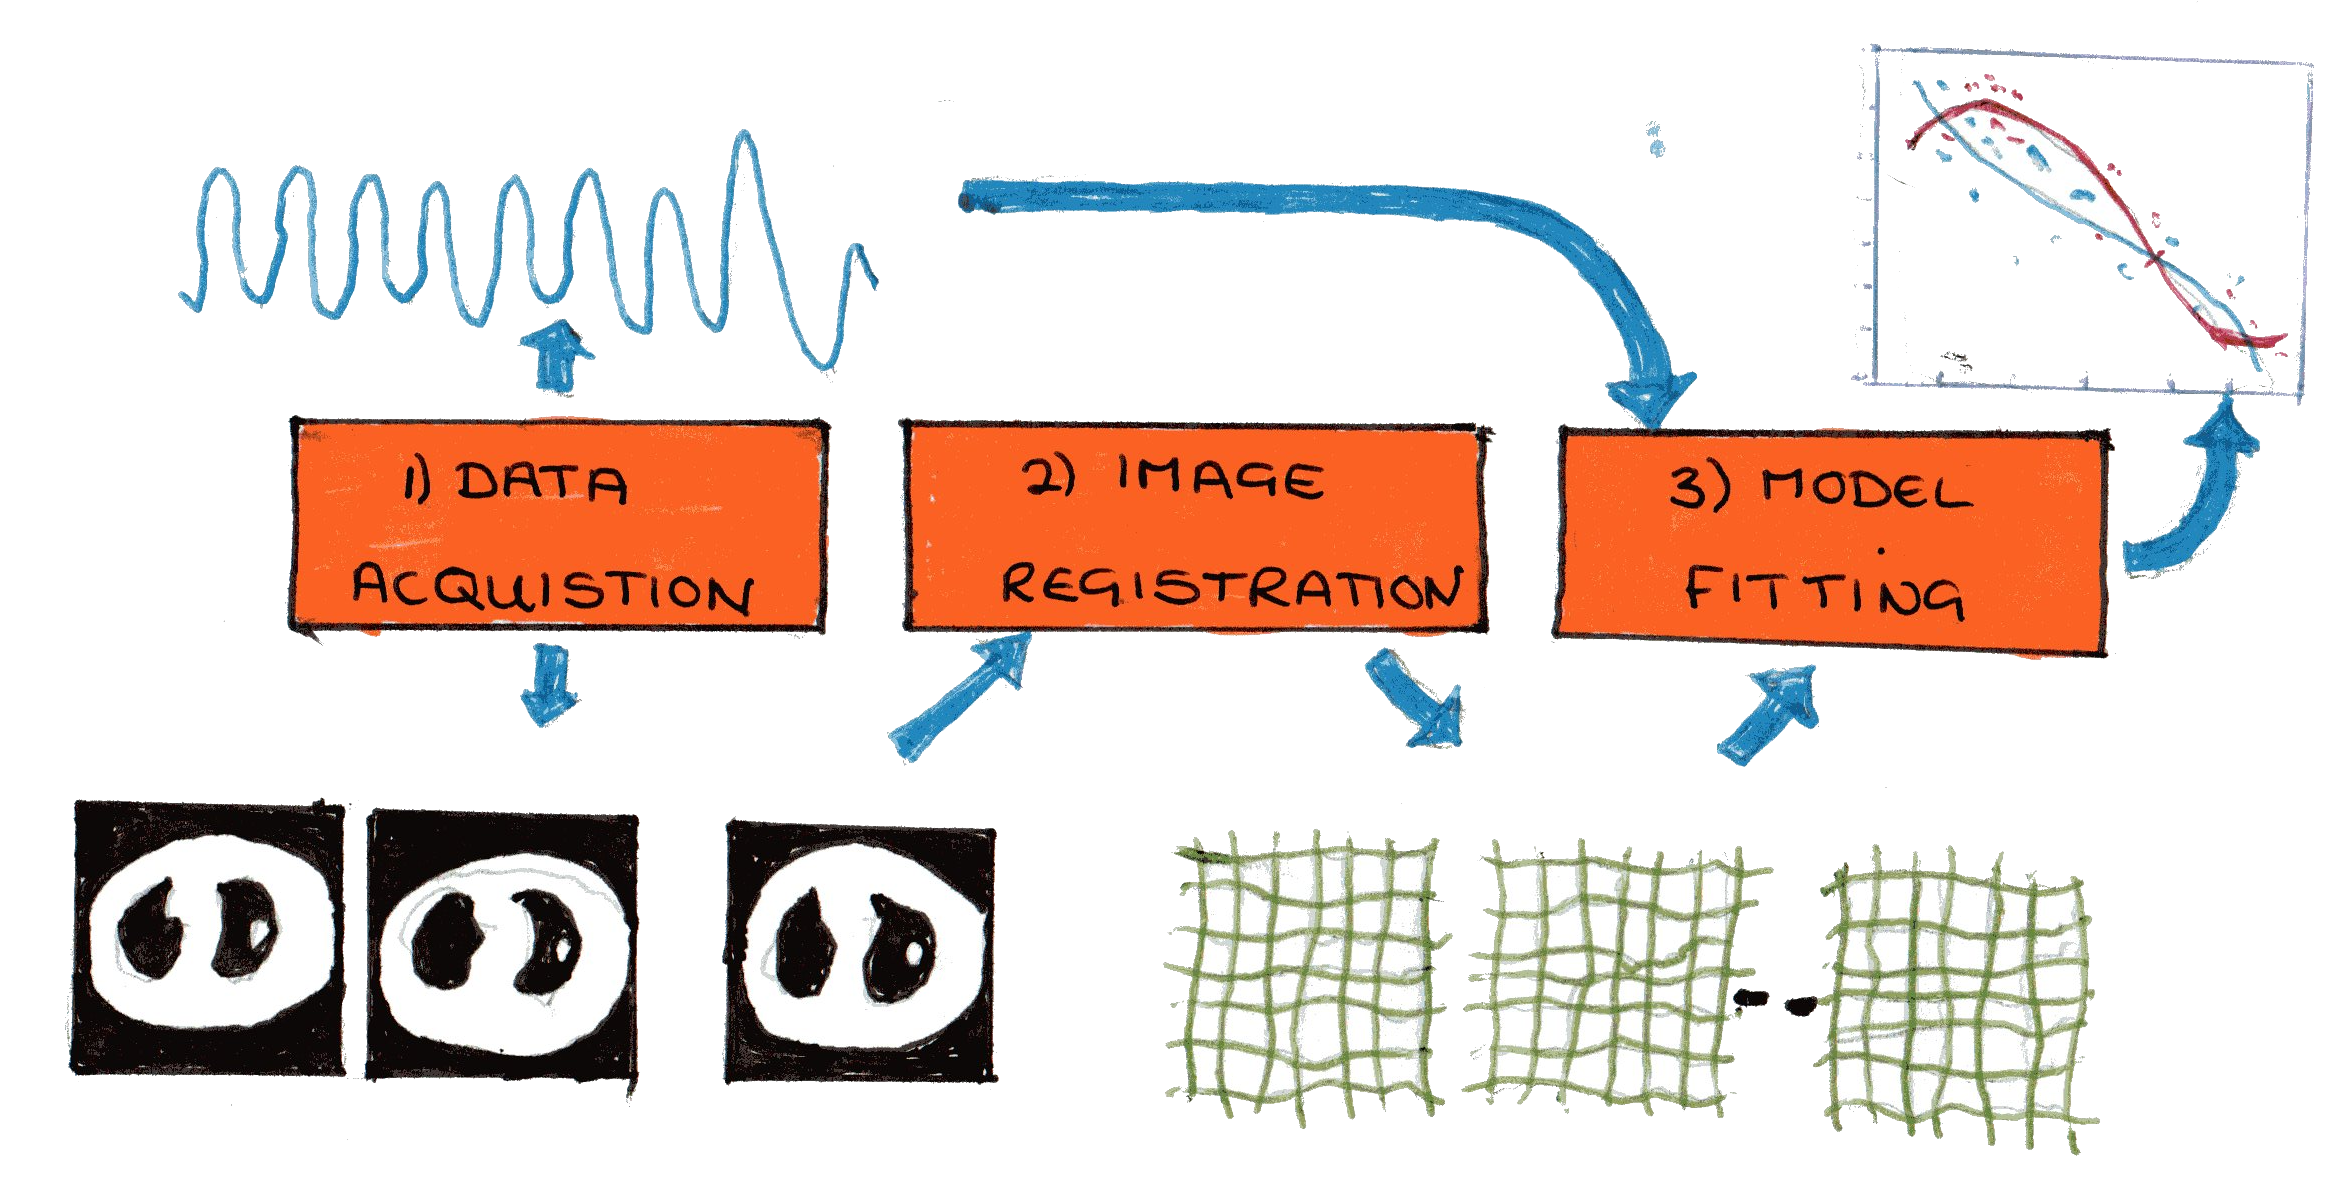 1) DATA
ACQUISTION
2) IMAGE
REGISTRATION
3) MODEL
FITTING